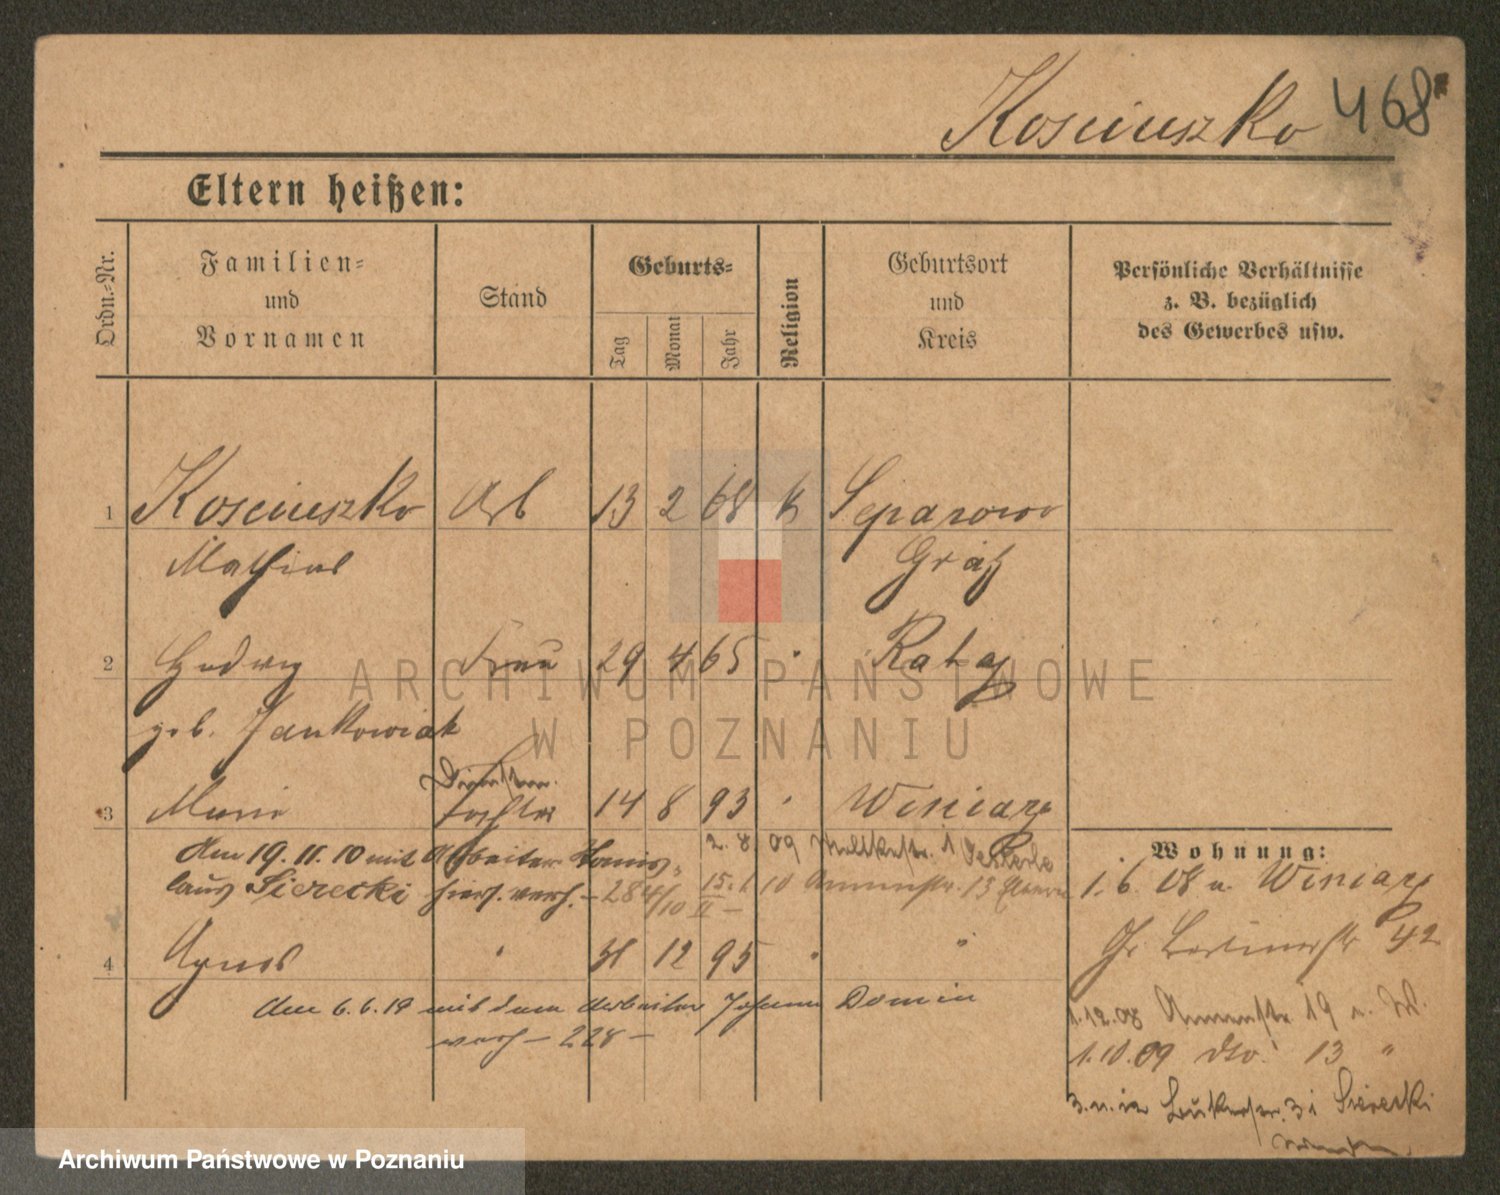 Kosciuszko 468
Eltern heißen:
Ordn.-Nr.
Familien-
und
Vornamen
Stand
Geburts-
Tag
Monat
Jahr
Religion
Geburtsort
und
Kreis
Persönliche Verhältnisse
z. B. bezüglich
des Gewerbes usw.
1 Kosciuszko Arb 13 2 68 k Separowo
Mathias Grätz
2 Hedwig Frau 29 4 65 " Rataj
geb. Jankowiak
3 Marie Tochter 14 8 93 " Winiary
2. 8 09
Am 19. 11. 10 mit Arbeiter Stanis-
laus Sierecki verh. - 284/10 15. 1 10 13
4 Agnes " 31 12 95 " "
Am 6.6.19 mit dem Arbeiter Johann Domin
verh - 228 -
Wohnung:
1. 6. 08 n. Winiary
42
1.12.08 19 n. W.
1.10.09 dto. 13 "
3 i Sierecki
ARCHIWUM PAŃSTWOWE
W POZNANIU
Archiwum Państwowe w Poznaniu